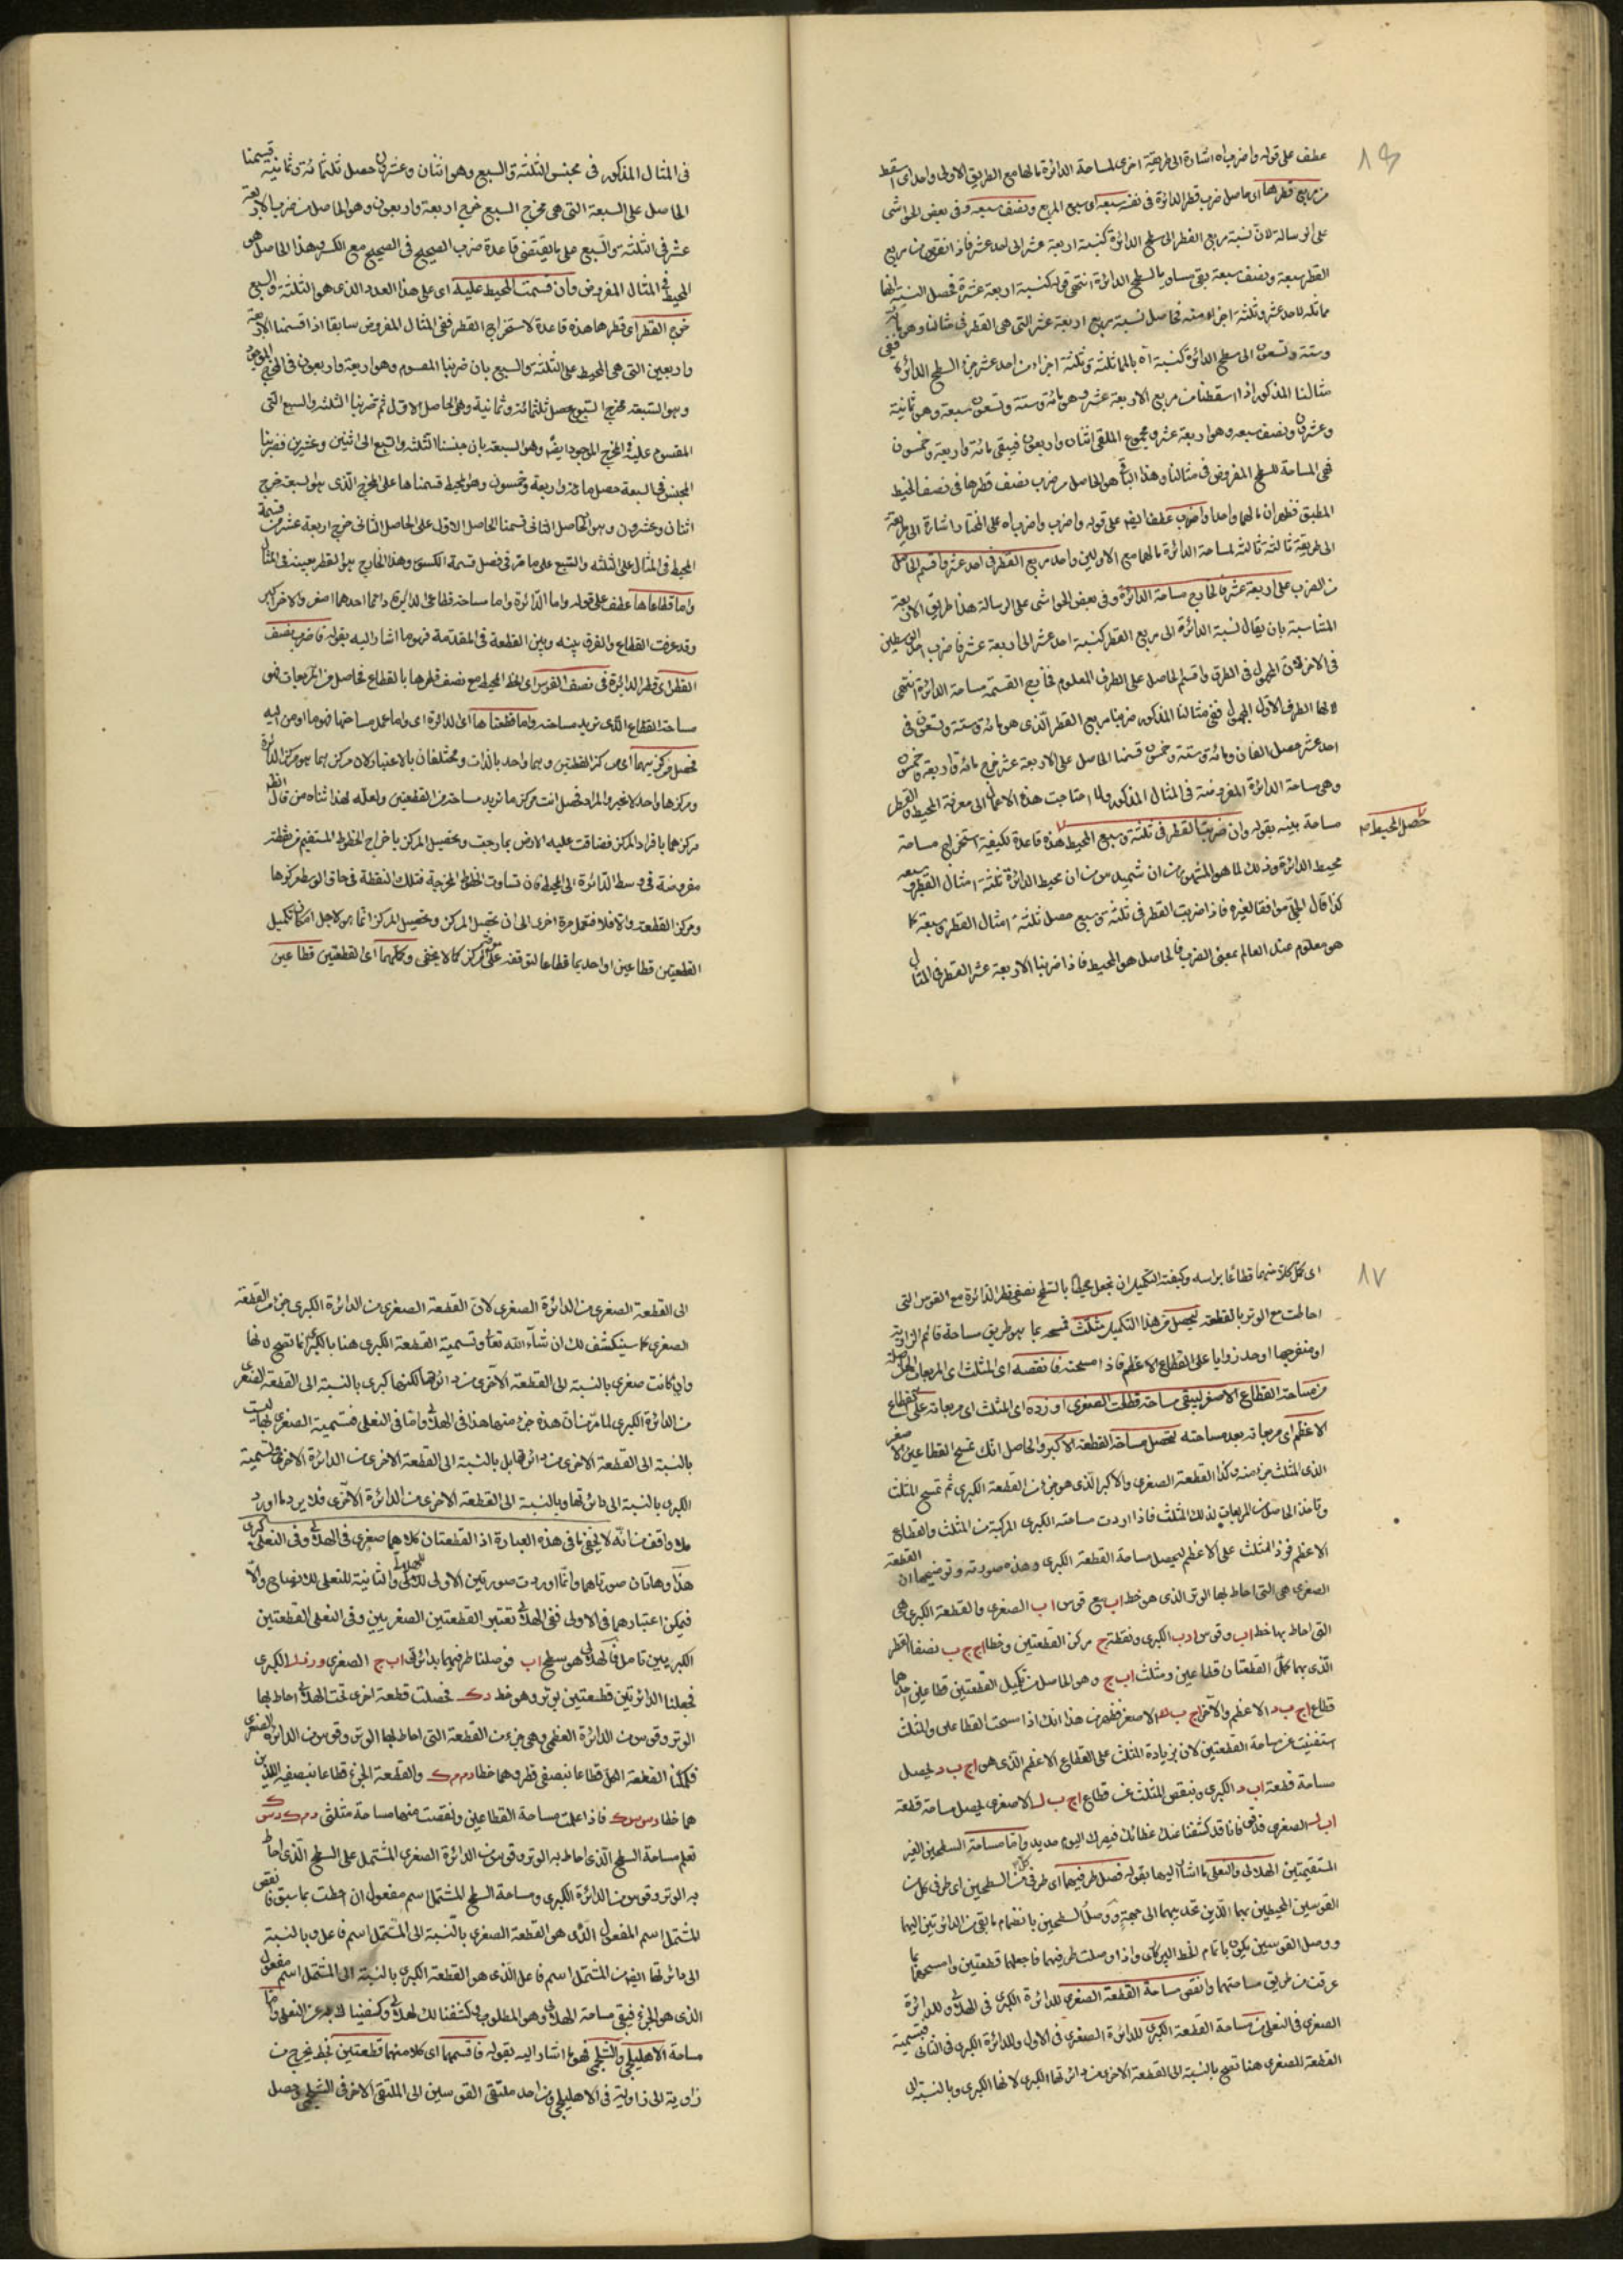 ٨٦
عطف على قوله واضرباه اشارة الى طريقة اخرى لمساحة الدائرة مالها مع الطريق الاولى واحد اى اسقط
من مربع قطرها اى حاصل ضرب قطر الدائرة فى نفسه سبعه اى سبع المربع ونصف سبعه وفى بعض الحواشى
على الرسالة لان نسبة مربع القطر الى سطح الدائرة كنسبة اربعة عشر الى احد عشر فاذا نقص من مربع
القطر سبعة ونصف سبعة بقى مساويا لسطح الدائرة انتهى قوله كنسبة اربعة عشرة فحصل النسبة انها
مماثلة لاحد عشر وثلثة اجزاء منه فحاصل نسبة مربع اربعة عشر التى هى القطر فى مثالنا وهو مائة
وستة وتسعون الى سطح الدائرة كنسبة اه بالمماثلة وثلثة اجزاء من احد عشر من السطح الدائرة ففى
مثالنا المذكور اذا اسقطنا من مربع الاربعة عشر وهو مائة وستة وتسعون سبعة وهو ثمانية
وعشرون ونصف سبعه وهو اربعة عشر ومجموع الملقى اثنان واربعون فيبقى مائة واربعة وخمسون
فهى المساحة للسطح المفروض فى مثالنا وهذا الباقى هو الحاصل من ضرب نصف قطرها فى نصف المحيط
المطبق فظهر ان مالهما واحد او اضرب عطف ايضا على قوله واضرب واضرباه على المختار اشارة الى طريقة
الى طريقة ثالثة لمساحة الدائرة مالها مع الاوليين واحد مربع القطر فى احد عشر واقسم الحاصل
من الضرب على اربعة عشر فالخارج مساحة الدائرة وفى بعض الحواشى على الرسالة هذا طريق الاربعة
المتناسبة بان يقال نسبة الدائرة الى مربع القطر كنسبة احد عشر الى اربعة عشر فاضرب احد الوسطين
فى الاخر لان المجهول فى الطرف واقسم الحاصل على الطرف المعلوم فخارج القسمة مساحة الدائرة انتهى
لانها الطرف الاول المجهول ففى مثالنا المذكور ضربنا مربع القطر الذى هو مائة وستة وتسعون فى
احد عشر حصل الفان ومائة وستة وخمسون قسمنا الحاصل على الاربعة عشر خرج مائة واربعة وخمسون
وهى مساحة الدائرة المفروضة فى المثال المذكور ولما احتاجت هذه الاعمال الى معرفة المحيط والقطر
مساحة بينه بقوله وان ضربت القطر فى ثلثة وسبع المحيط هذه قاعدة لكيفية استخراج مساحة
حصل المحيط صح
محيط الدائرة وذلك لما هو المشهور من ان محيط الدائرة ثلثة امثال القطر وسبعه
كذا قال موافقا لغيره فاذا ضربت القطر فى ثلثة وسبع حصل ثلثة امثال القطر وسبعه كما
هو معلوم عند العالم بمعنى الضرب فالحاصل هو المحيط فاذا ضربنا الاربعة عشر القطر فى المثال
فى المثال المذكور فى مجنس الثلثة والسبع وهو اثنان وعشرون حصل ثلثمائة وثمانية قسمنا
الحاصل على السبعة التى هى مخرج السبع خرج اربعة واربعون وهو الحاصل من ضرب الاربعة
عشر فى الثلثة والسبع على ما يقتضى قاعدة ضرب الصحيح فى الصحيح مع الكسر وهذا الحاصل هو
المحيط فى المثال المفروض وان قسمت المحيط عليه اى على هذا العدد الذى هو الثلثة والسبع
خرج القطر اى قطرها هذه قاعدة لاستخراج القطر ففى المثال المفروض سابقا اذا قسمنا الاربعة
واربعين التى هى المحيط على الثلثة والسبع بان ضربنا المقسوم وهو اربعة واربعون فى المخرج الموجود
وهو السبعة مخرج السبع حصل ثلثمائة وثمانية وهى الحاصل الاول ثم ضربنا الثلثه والسبع التى
المقسوم عليه فى المخرج الموجود ايضا وهو السبعة بان جنسنا الثلثه والسبع الى اثنين وعشرين فضربنا
المجنس فى السبعة حصل مائة واربعة وخمسون وهو المحيط قسمناها على المخرج الذى هو السبعة خرج
اثنان وعشرون وهو الحاصل الثانى قسمنا الحاصل الاول على الحاصل الثانى خرج اربعة عشر من قسمة
المحيط فى المثال على الثلثه والسبع على ما مر فى فصل قسمة الكسور وهذا الخارج هو القطر بعينه فى المثال
واما قطاعاها عطف على قوله واما الدائرة واما مساحة قطاعى الدائرة دائما احدهما اصغر والاخر اكبر
وقد عرفت القطاع والفرق بينه وبين القطعة فى المقدمة فهو ما اشار اليه بقوله فاضرب نصف
القطر اى قطر الدائرة فى نصف القوس اى الخط المحيط مع نصف قطرها بالقطاع فحاصل من المربعات هو
مساحة القطاع الذى تريد مساحته واما قطعتاها اى الدائرة اى واما عمل مساحتها فهو ما اومى اليه
فحصل مركزيهما اى مركز القطعتين وهما واحد بالذات ومختلفان بالاعتبار لان مركزهما هو مركز الدائرة
ومركزها واحد لا غير والمراد فحصل انت مركز ما تريد مساحته من القطعتين ولعله لهذا ثناه من قال انظر
مركزهما بافراد المركز فضاقت عليه الارض بما رحبت وتحصيل المركز باخراج الخطوط المستقيم من نقطة
مفروضة فى وسط الدائرة الى المحيط فان تساوت الخطوط المخرجة فتلك النقطة فى حاق الوسط مركزها
ومركز القطعة والا فلا فتعمل مرة اخرى الى ان تحصل المركز وتحصيل المركز انما هو لاجل امكان تكميل
القطعتين قطاعين او احديهما قطاعا لتوقفه على المركز كما لا يخفى وكملهما اى القطعتين قطاعين
٨٧
اى كل كلا منهما قطاعا براسه وكيفية التكميل ان تجعل محيطا بالسطح نصفى قطر الدائرة مع القوس التى
احاطت مع الوتر بالقطعة ليحصل من هذا التكميل مثلث فتمسحه بما هو طريق مساحة قائم الزاوية
او منفرجها او حد زوايا على القطاع الاعظم فاذا مسحته فانقصه اى المثلث اى المربعات الحاصلة
من مساحة القطاع الاصغر ليبقى مساحة قطعات الصغرى او زده اى المثلث اى مربعاته على القطاع
الاعظم اى مربعاته بعد مساحته لتحصل مساحة القطعة الاكبر والحاصل انك تمسح القطاعين الاصغر
الذى المثلث جزء منه وكذا القطعة الصغرى والاكبر الذى هو جزء من القطعة الكبرى ثم تمسح المثلث
وتاخذ الحاصل من المربعات لذلك المثلث فاذا اردت مساحة الكبرى المركبة من المثلث والقطاع
الاعظم فزد المثلث على الاعظم ليحصل مساحة القطعة الكبرى وهذه صورته وتوضيحها ان القطعة
الصغرى هى التى احاط بها الوتر الذى هو خط اب مع قوس ا ب الصغرى والقطعة الكبرى هى
التى احاط بها خط اب وقوس ادب الكبرى ونقطة ج مركز القطعتين وخطا اج ج ب نصفا القطر
الذى بهما كمل القطعتان قطاعين ومثلث اب ج وهو الحاصل من تكميل القطعتين قطاعين احدهما
قطاع اج ب د الاعظم والاخر اج ب ه الاصغر فظهر من هذا انك اذا مسحت القطاعين والمثلث
استغنيت عن مساحة القطعتين لان بزيادة المثلث على القطاع الاعظم الذى هو اج ب د يحصل
مساحة قطعة اب د الكبرى وبنقص المثلث عن قطاع اج ب ه الاصغرى يحصل مساحة قطعة
اب ه الصغرى فانا قد كشفنا عنك غطائك فبصرك اليوم حديد واما مساحة السطحين الغير
المستقيمين الهلالى والنعلى ما اشار اليها بقوله فصل طرفيهما اى طرفى كل من السطحين اى طرفى كل من
القوسين المحيطين بهما اللذين تحديهما الى جهة ووصل السطحين بانضمام ما بقى من الدائرتين اليهما
ووصل القوسين يكون باتمام الخط البركارى واذا وصلت طرفيهما فاجعلهما قطعتين وامسحهما بما
عرفت من طريق مساحتهما وانقص مساحة القطعة الصغرى للدائرة الكبرى فى الهلالى وللدائرة
الصغرى فى النعلى من مساحة القطعة الكبرى للدائرة الصغرى فى الاول وللدائرة الكبرى فى الثانى فتسمية
القطعة الصغرى هنا تصح بالنسبة الى القطعة الاخرى من دائرتها الكبرى لانها الكبرى وبالنسبة الى
الى القطعة الصغرى من الدائرة الصغرى لان القطعة الصغرى من الدائرة الكبرى جزء من القطعة
الصغرى كما سينكشف لك ان شاء الله تعالى وتسمية القطعة الكبرى هنا بالكبرى انما تصح لانها
وان كانت صغرى بالنسبة الى القطعة الاخرى من دائرتها لكنها كبرى بالنسبة الى القطعة الصغرى
من الدائرة الكبرى لما مر من ان هذه جزء منهما هذا فى الهلالى واما فى النعلى فتسمية الصغرى بها ليست
بالنسبة الى القطعة الاخرى من دائرتها بل بالنسبة الى القطعة الاخرى من الدائرة الاخرى وتسمية
الكبرى بالنسبة الى دائرتها وبالنسبة الى القطعة الاخرى من الدائرة الاخرى فلا يرد ما اورد
ملا واقف من انه لا يخفى ما فى هذه العبارة اذ القطعتان كلاهما صغرى فى الهلالى وفى النعلى كبرى
هذا وهاتان صورتاهما وانما اوردت صورتين الاولى للهلالى والثانية للنعلى للايضاح والا
فيمكن اعتبارهما فى الاولى ففى الهلالى تعتبر القطعتين الصغريين وفى النعلى القطعتين
الكبريين تامل فالهلالى هو سطح اب فوصلنا طرفيهما بدائرتى اب ج الصغرى الكبرى
فجعلنا الدائرتين قطعتين بوتر وهو خط دك فحصلت قطعة اخرى تحت الهلالى احاط بها
الوتر وقوس من الدائرة العظمى وهى جزء من القطعة التى احاط بها الوتر وقوس من الدائرة الصغرى
فكملنا القطعة الكل قطاعا بنصفى قطر وهما خطا دم م ك والقطعة الجزء قطاعا بنصفيه اللذين
هما خطا دس س ك فاذا علمت مساحة القطاعين ونقصت منهما مساحة مثلثى دم ك دس ك
تعلم مساحة السطح الذى احاط به الوتر وقوس من الدائرة الصغرى المشتمل على السطح الذى احاط
به الوتر وقوس من الدائرة الكبرى ومساحة السطح المشتمل اسم مفعول ان احطت بما سبق فانقص
المشتمل اسم المفعول الذى هو القطعة الصغرى بالنسبة الى المشتمل اسم فاعل وبالنسبة
الى دائرتها ايضا من المشتمل اسم فاعل الذى هو القطعة الكبرى بالنسبة الى المشتمل اسم مفعول
الذى هو الجزء فيبقى مساحة الهلالى وهو المطلوب كشفنا لك الهلالى وكفينا لك به عن النعلى واما
مساحة الاهليلجى والشلجمى فهو ما اشار اليه بقوله فاقسمهما اى كلا منهما قطعتين بخط يخرج من
زاوية الى زاوية فى الاهليلجى ومن احد ملتقى القوسين الى الملتقى الاخر فى الشلجمى يحصل